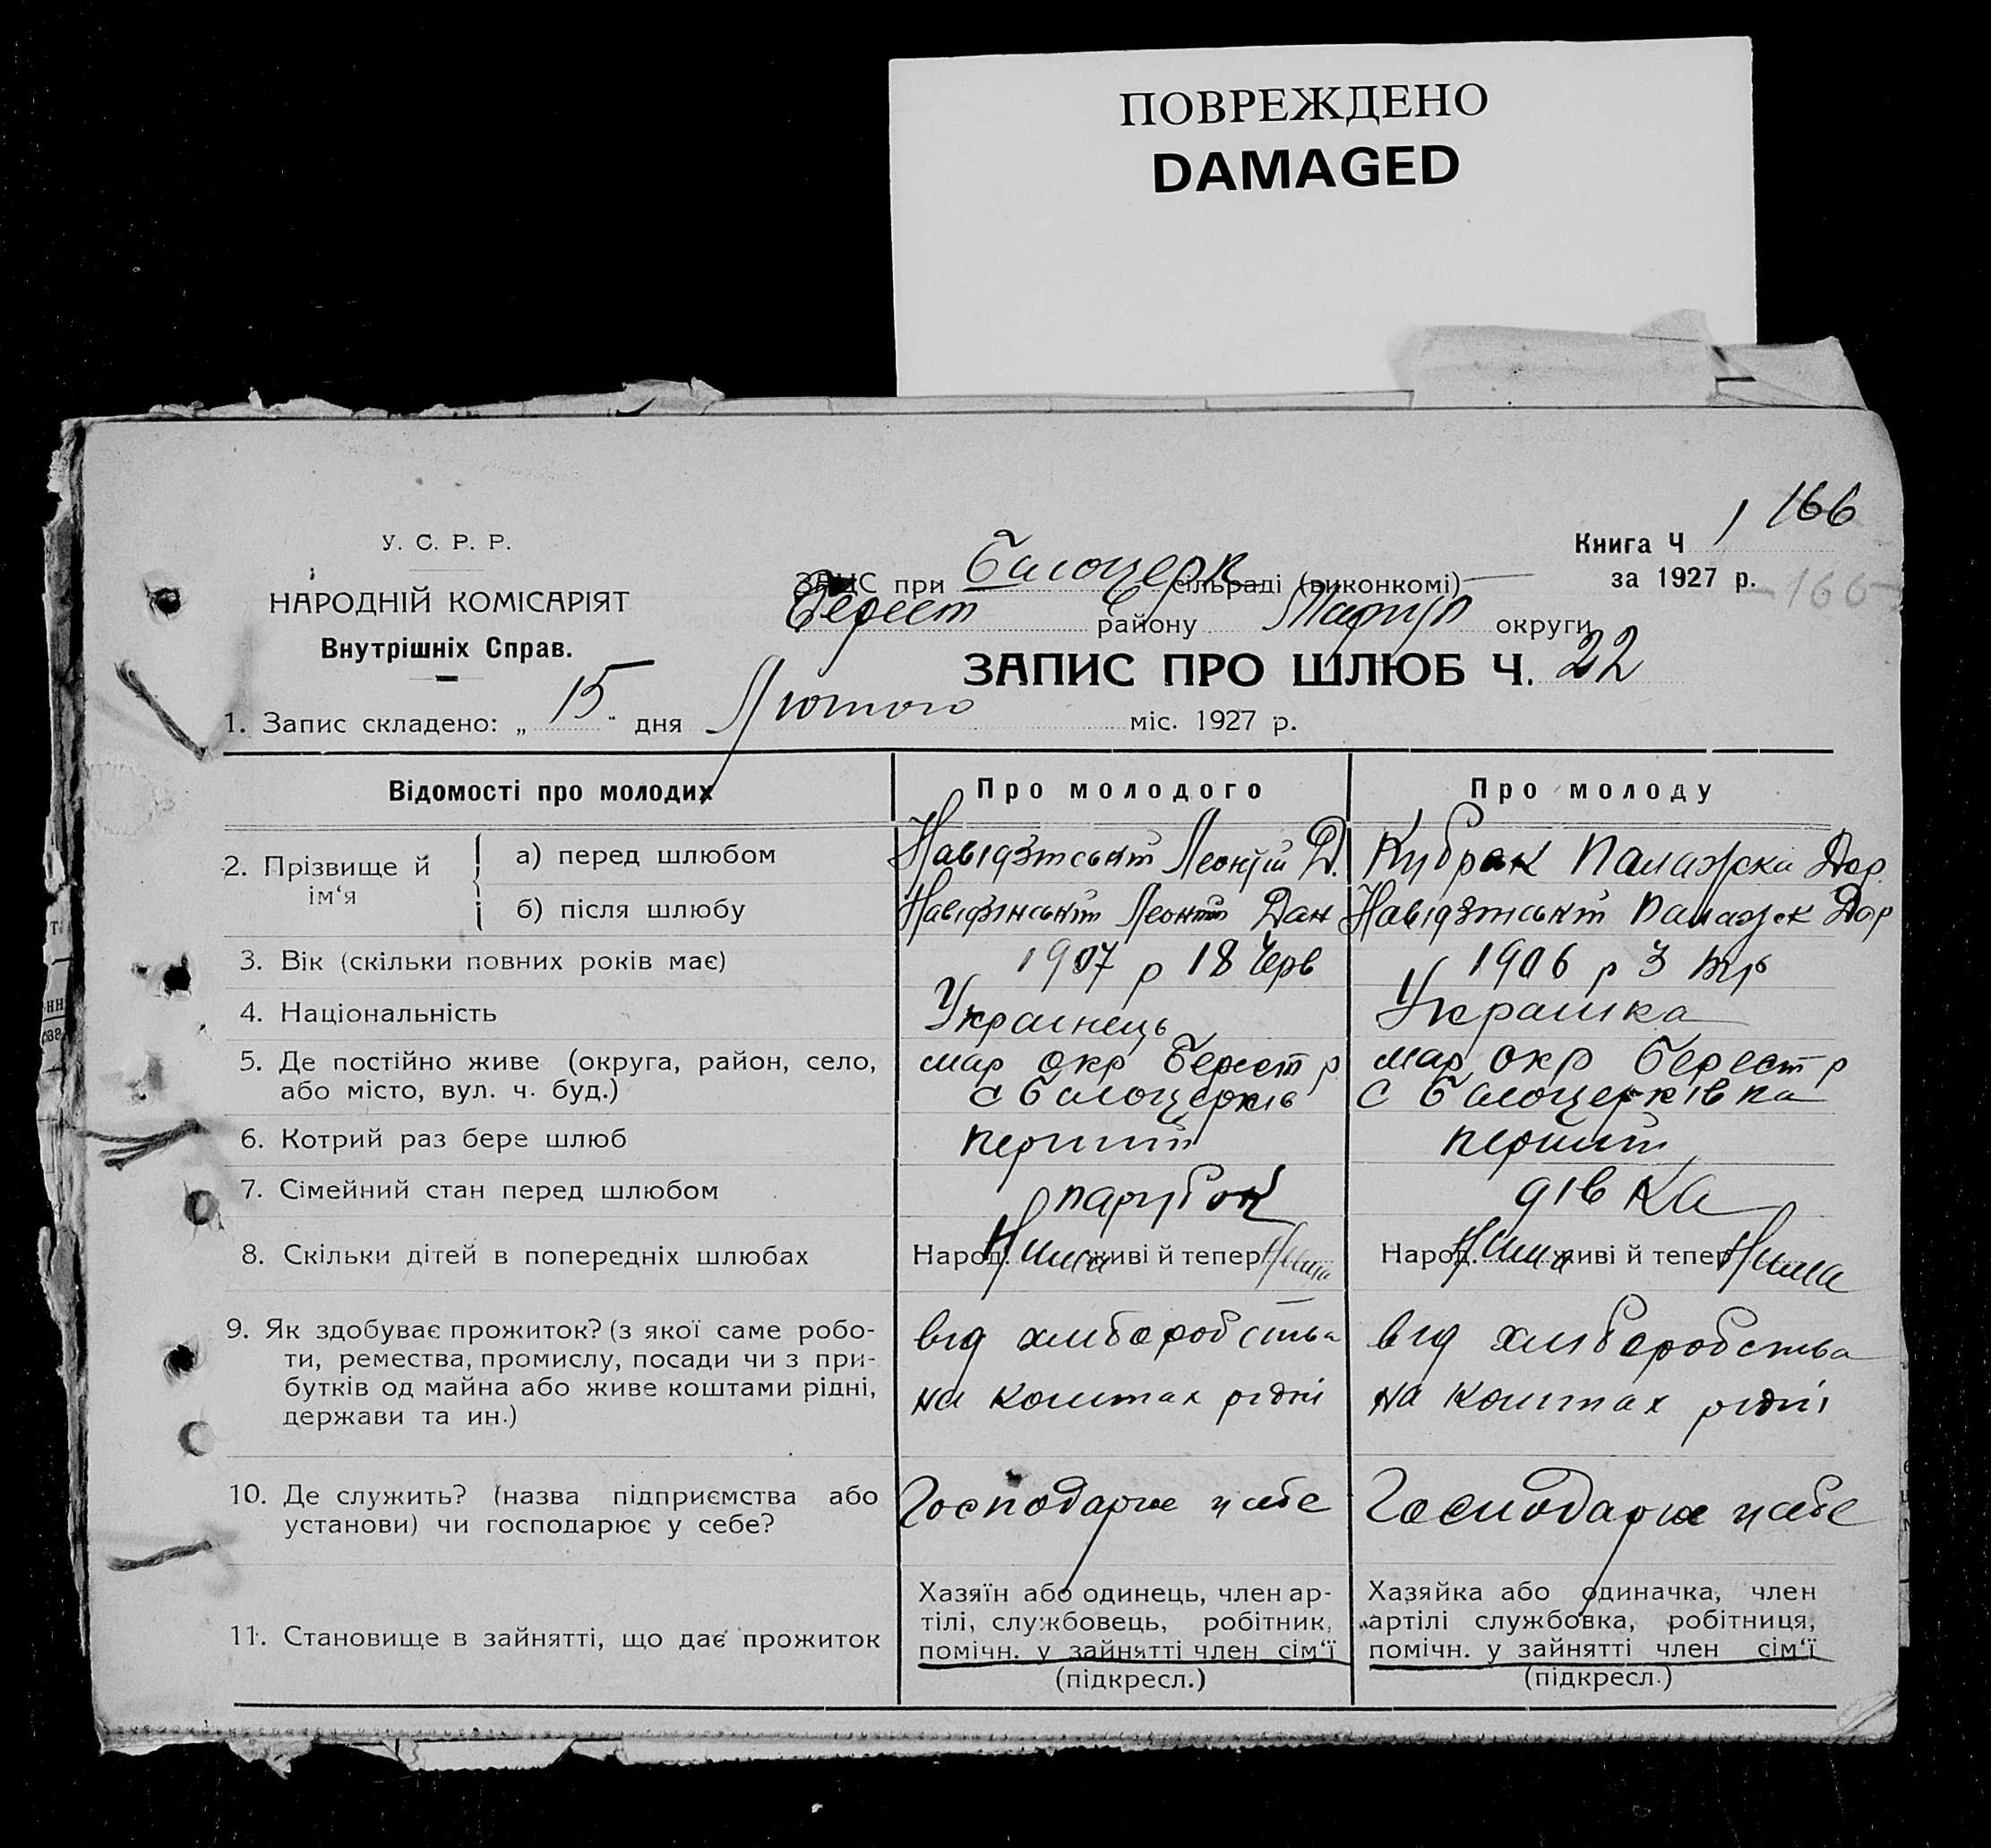 ПОВРЕЖДЕНО
DAMAGED
166
Книга Ч 1
за 1927 р.
166
У. С. Р. Р.
НАРОДНІЙ КОМІСАРІЯТ
Внутрішніх Справ.
ЗАГС при Білоцерк сільраді (виконкомі)
Берест району Маріуп округи
ЗАПИС ПРО ШЛЮБ Ч. 22
1. Запис складено: „ 15 " дня Лютого міс. 1927 р.
Відомості про молодих
Про молодого
Про молоду
2. Прізвище й ім‘я
а) перед шлюбом
Леонтій Д.
Кубрак Палажка Дор
б) після шлюбу
Леонтій Дан
Палажк Дор
3. Вік (скільки повних років має)
1907 р 18 Черв
1906 р 3
4. Національність
Українець
Українка
5. Де постійно живе (округа, район, село,
або місто, вул. ч. буд.)
мар окр Берест р
с Білоцерків
мар окр Берест р
с Білоцерківка
6. Котрий раз бере шлюб
перший
перший
7. Сімейний стан перед шлюбом
парубок
дівка
8. Скільки дітей в попередніх шлюбах
Народ. Нима живі й тепер Нима
Народ. Нима живі й тепер Нима
9. Як здобуває прожиток? (з якої саме робо-
ти, ремества, промислу, посади чи з при-
бутків од майна або живе коштами рідні,
держави та ин.)
від хліборобства
на коштах рідні
від хліборобства
на коштах рідні
10. Де служить? (назва підприємства або
установи) чи господарює у себе?
Господарює у себе
Господарює у себе
11. Становище в зайнятті, що дає прожиток
Хазяїн або одинець, член ар-
тілі, службовець, робітник,
помічн. у зайнятті член сім‘ї
(підкресл.)
Хазяйка або одиначка, член
артілі службовка, робітниця,
помічн. у зайнятті член сім‘ї
(підкресл.)